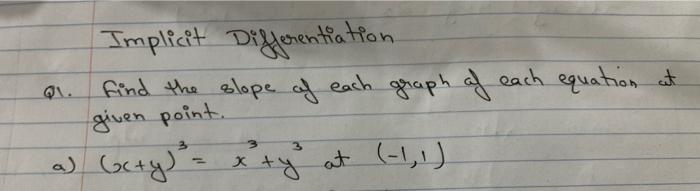 Implicit Differentiation
Q1. Find the slope of each graph of each equation at
given point.
a) (x+y)³ = x³+y³ at (-1,1)